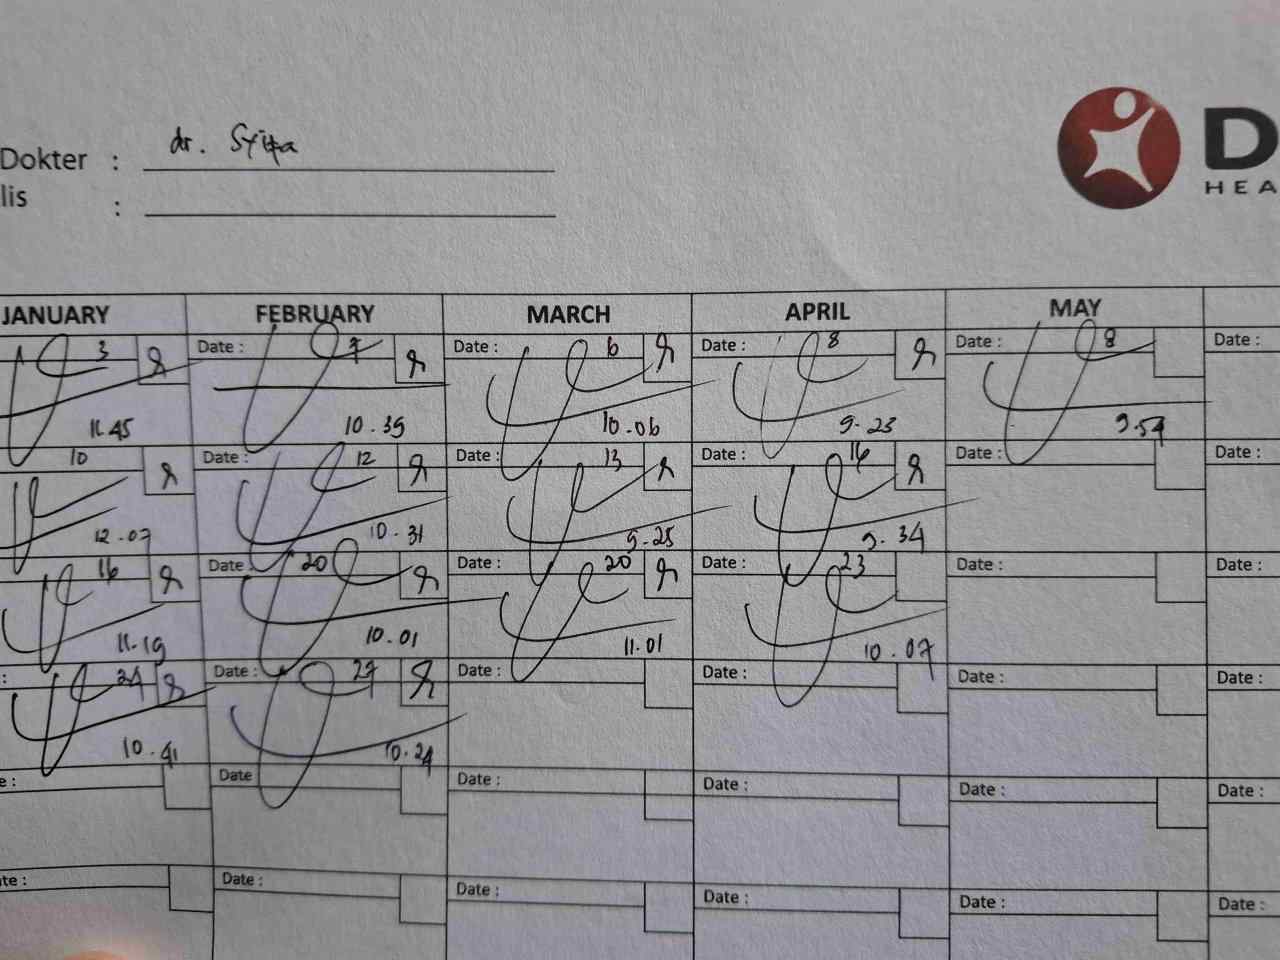 Dokter : dr. Syifa
lis :
D
HEA
JANUARY FEBRUARY MARCH APRIL MAY
3 Date : 7 Date : 6 Date : 8 Date : 8 Date :
11.45 10.39 10.06 9.23 9.54
10 Date : 12 Date : 13 Date : 16 Date : Date :
12.07 10.31 9.25 9.34
16 Date 20 Date : 20 Date : 23 Date : Date :
11.19 10.01 11.01 10.07
: 24 Date : 27 Date : Date : Date : Date :
10.41 10.24
e : Date Date : Date : Date : Date :
te : Date : Date : Date : Date : Date :